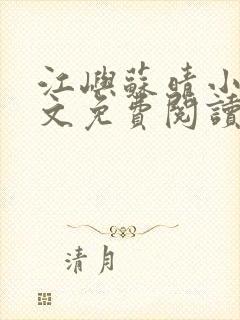 江嶼蘇晴小
文免費閱讀
清月